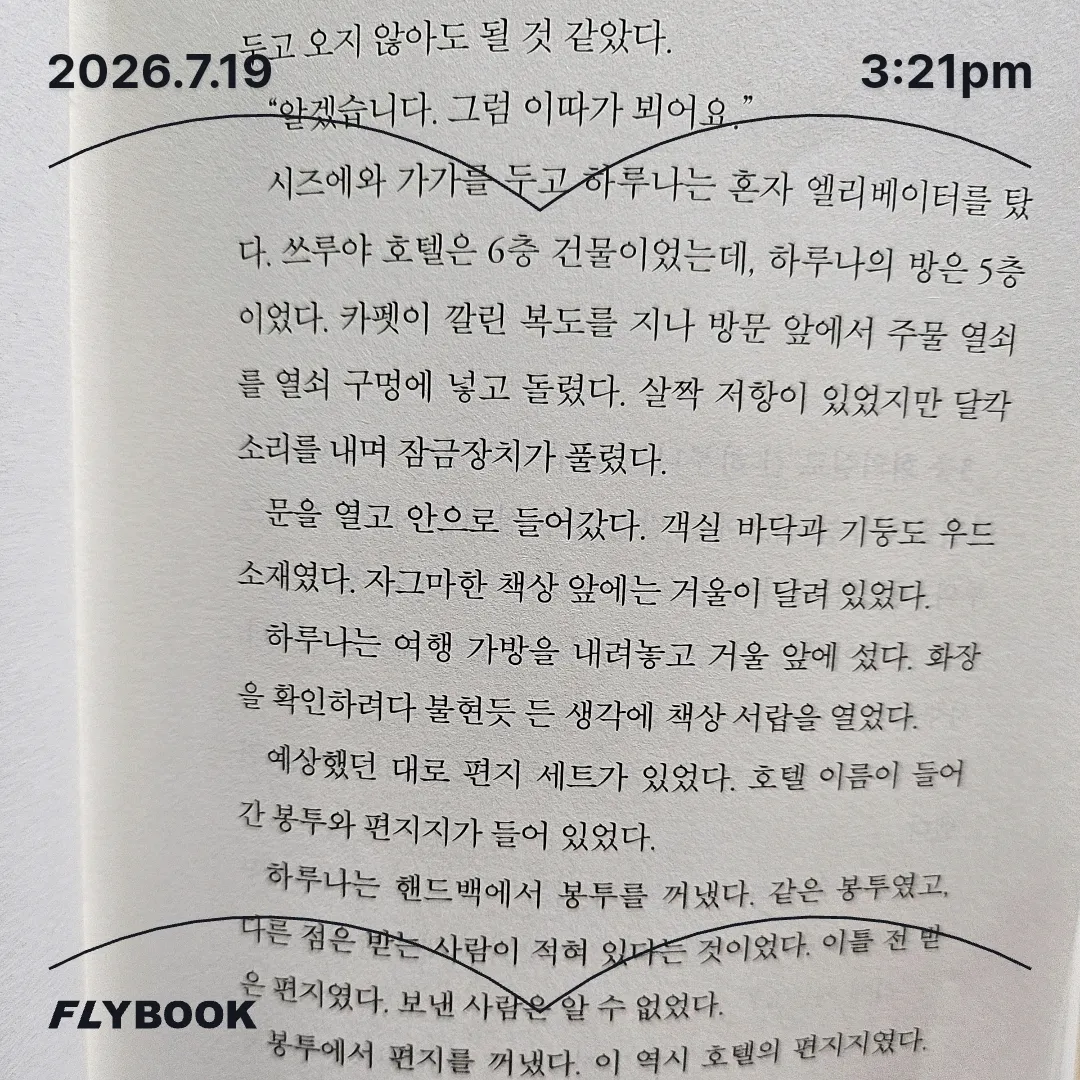 두고 오지 않아도 될 것 같았다.
2026.7.19
3:21pm
“알겠습니다. 그럼 이따가 뵈어요.”
시즈에와 가가를 두고 하루나는 혼자 엘리베이터를 탔
다. 쓰루야 호텔은 6층 건물이었는데, 하루나의 방은 5층
이었다. 카펫이 깔린 복도를 지나 방문 앞에서 주물 열쇠
를 열쇠 구멍에 넣고 돌렸다. 살짝 저항이 있었지만 달칵
소리를 내며 잠금장치가 풀렸다.
문을 열고 안으로 들어갔다. 객실 바닥과 기둥도 우드
소재였다. 자그마한 책상 앞에는 거울이 달려 있었다.
하루나는 여행 가방을 내려놓고 거울 앞에 섰다. 화장
을 확인하려다 불현듯 든 생각에 책상 서랍을 열었다.
예상했던 대로 편지 세트가 있었다. 호텔 이름이 들어
간 봉투와 편지지가 들어 있었다.
하루나는 핸드백에서 봉투를 꺼냈다. 같은 봉투였고,
다른 점은 받는 사람이 적혀 있다는 것이었다. 이틀 전 받
은 편지였다. 보낸 사람은 알 수 없었다.
FLYBOOK
봉투에서 편지를 꺼냈다. 이 역시 호텔의 편지지였다.